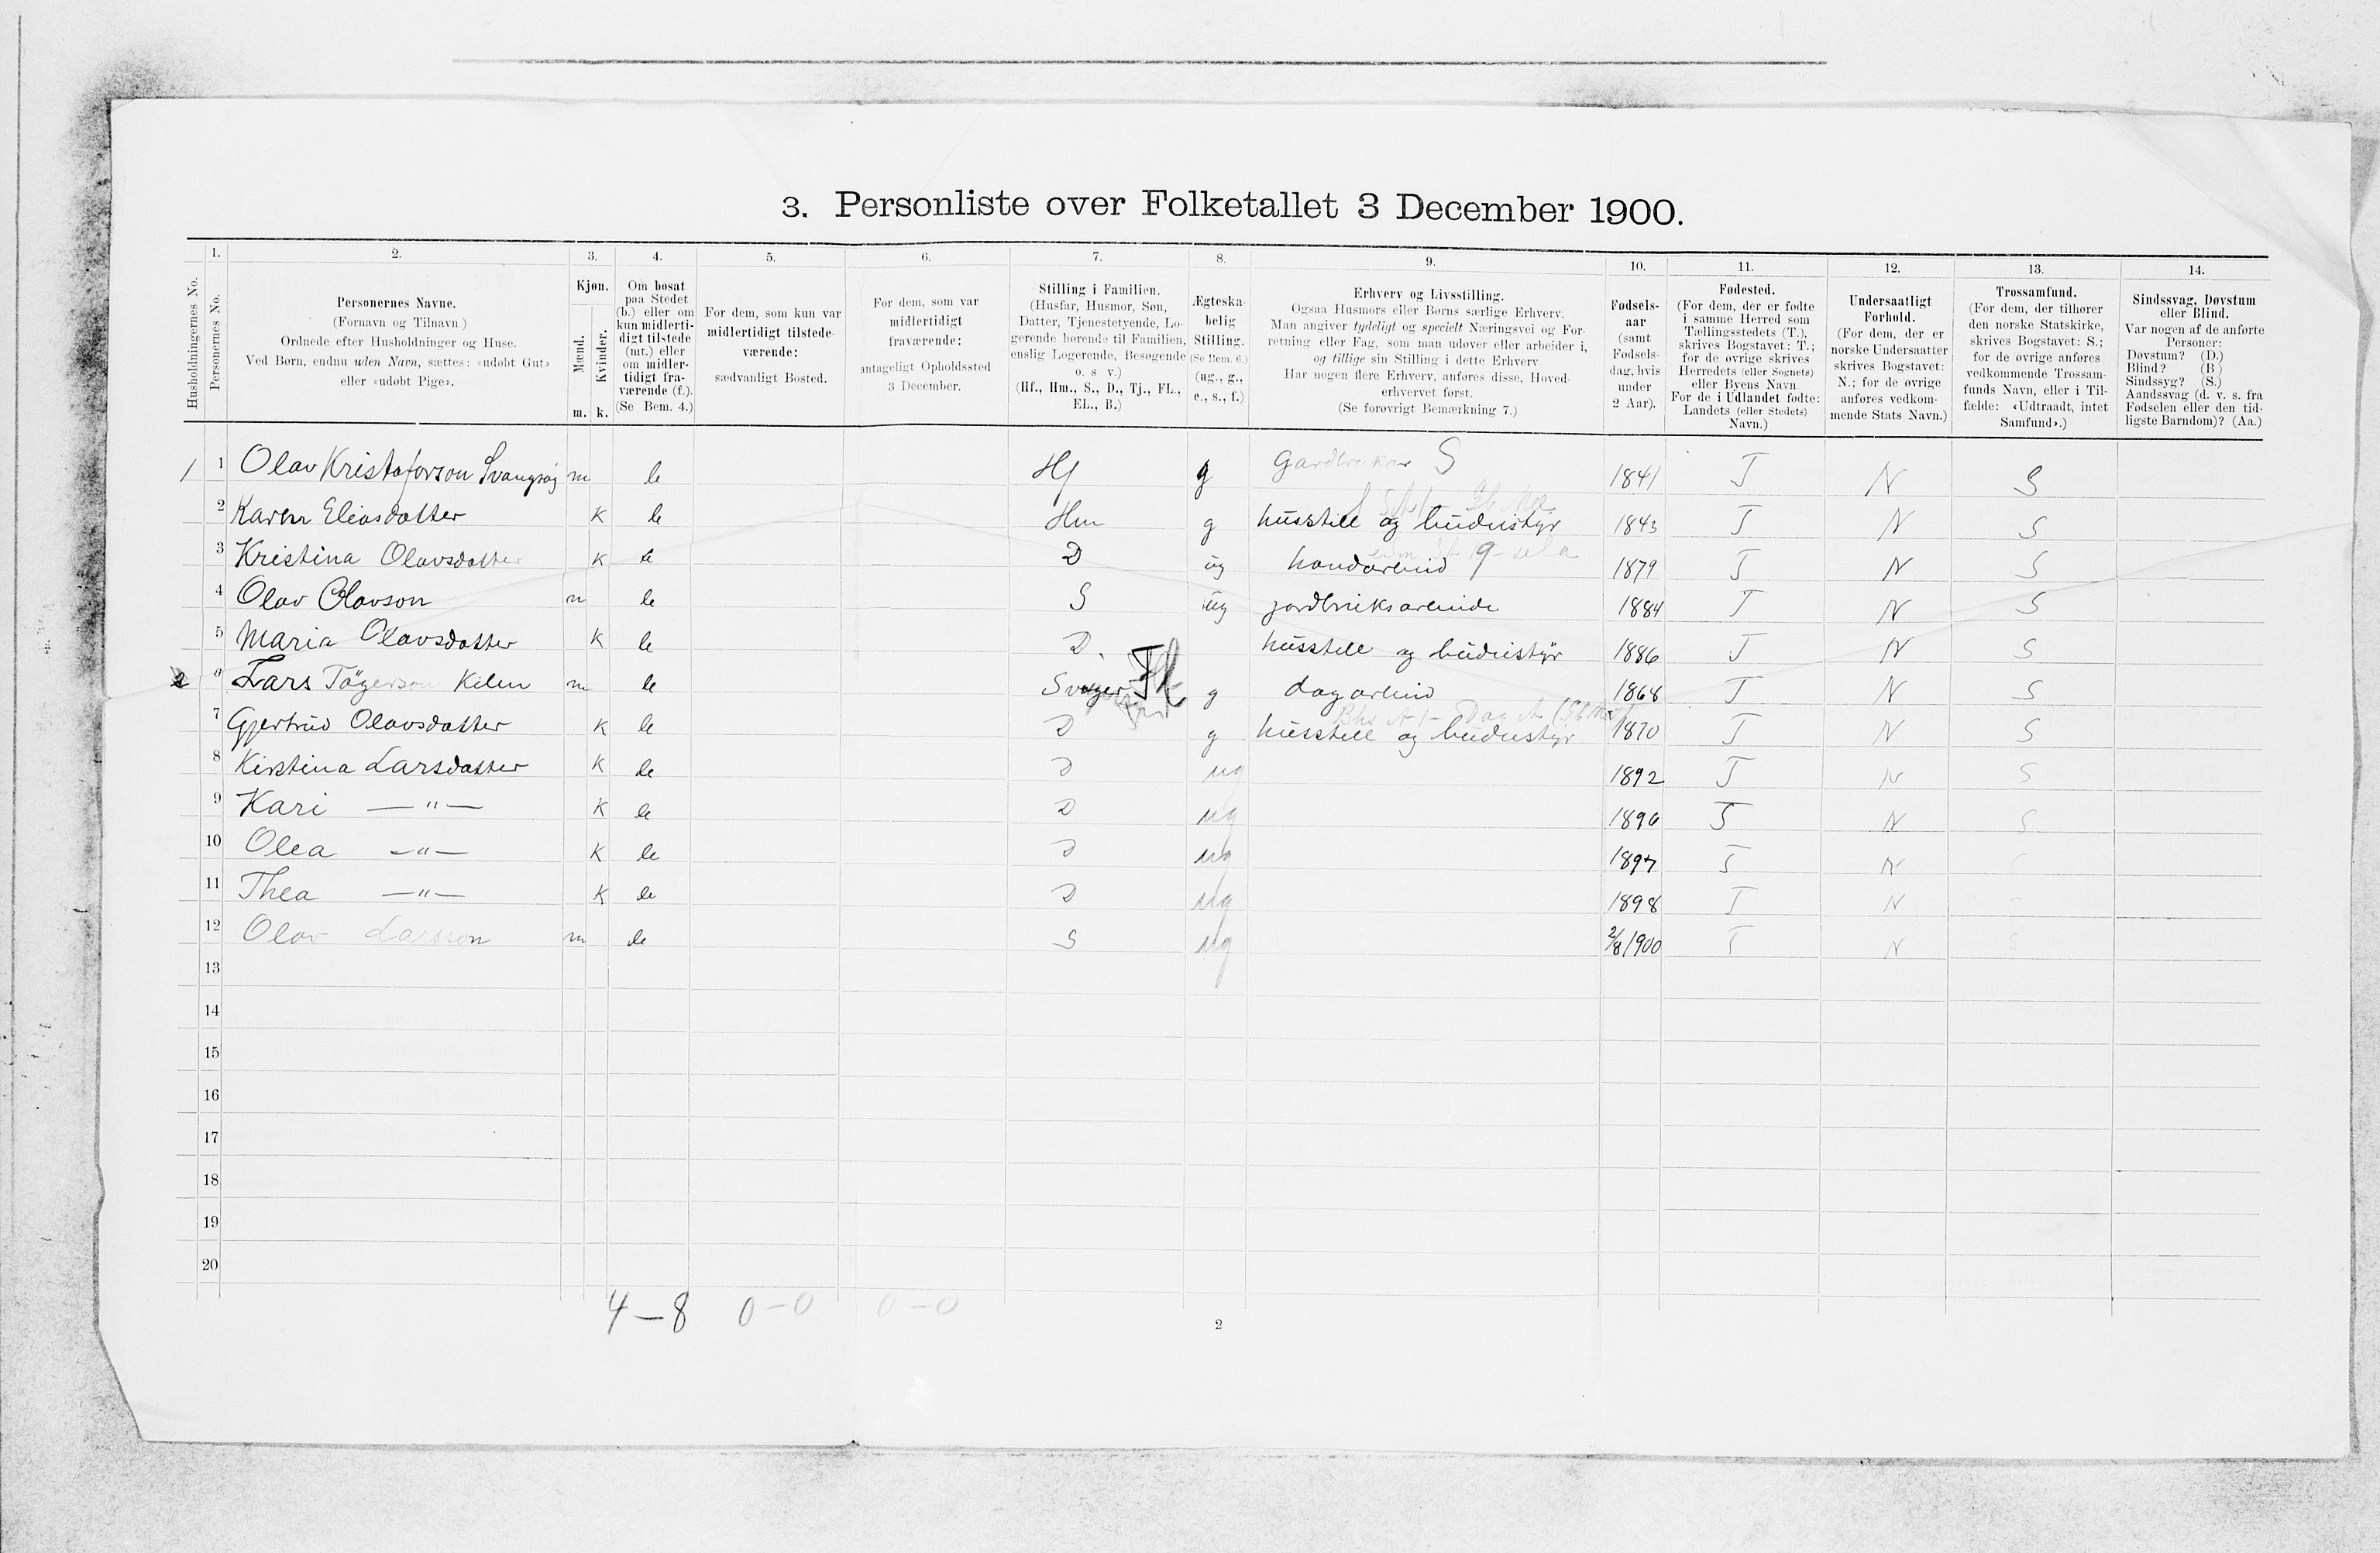 3. Personliste over Folketallet 3 December 1900.
1. 2. 3. 4. 5. 6. 7. 8. 9. 10. 11. 12. 13. 14.
Husholdningernes No.
Personernes No.
Personernes Navne.
(Fornavn og Tilnavn)
Ordnede efter Husholdninger og Huse.
Ved Børn, endnu uden Navn, sættes: «udøbt Gut»
eller «udøbt Pige».
Kjøn.
Mænd.
Kvinder.
m. k.
Om bosat
paa Stedet
(b.) eller om
kun midlerti-
digt tilstede
(mt.) eller
om midler-
tidigt fra-
værende (f.).
(Se Bem. 4.)
For dem, som kun var
midlertidigt tilstede-
værende:
sædvanligt Bosted.
For dem, som var
midlertidigt
fraværende:
antageligt Opholdssted
3 December.
Stilling i Familien.
(Husfar, Husmor, Søn,
Datter, Tjenestetyende, Lo-
gerende hørende til Familien,
enslig Logerende, Besøgende
o. s. v.)
(Hf., Hm., S., D., Tj., FL.,
EL., B.)
Ægteska-
belig
Stilling.
(Se Bem. 6.)
(ug., g.,
e., s., f.)
Erhverv og Livsstilling.
Ogsaa Husmors eller Børns særlige Erhverv.
Man angiver tydeligt og specielt Næringsvei og For-
retning eller Fag, som man udøver eller arbeider i,
og tillige sin Stilling i dette Erhverv
Har nogen flere Erhverv, anføres disse, Hoved-
erhvervet først.
(Se forøvrigt Bemærkning 7.)
Fødsels-
aar
(samt
Fødsels-
dag, hvis
under
2 Aar).
Fødested.
(For dem, der er fødte
i samme Herred som
Tællingsstedets (T.),
skrives Bogstavet: T.;
for de øvrige skrives
Herredets (eller Sognets)
eller Byens Navn
For de i Udlandet fødte:
Landets (eller Stedets)
Navn.)
Undersaatligt
Forhold.
(For dem, der er
norske Undersaatter
skrives Bogstavet:
N.; for de øvrige
anføres vedkom-
mende Stats Navn.)
Trossamfund.
(For dem, der tilhører
den norske Statskirke,
skrives Bogstavet: S.;
for de øvrige anføres
vedkommende Trossam-
funds Navn, eller i Til-
fælde: «Udtraadt, intet
Samfund».)
Sindssvag, Døvstum
eller Blind.
Var nogen af de anførte
Personer:
Døvstum? (D.)
Blind? (B.)
Sindssyg? (S.)
Aandssvag (d. v. s. fra
Fødselen eller den tid-
ligste Barndom)? (Aa.)
1 1 Olav Kristoferson m b Hf g Gardbrukar S 1841 T N S
2 Karen Eliasdatter k b Hm g husstell og budustyr 1843 T N S
3 Kristina Olavsdatter k b D ug handarbeid 1879 T N S
4 Olav Olavson m b S ug jordbruksarbeide 1884 T N S
5 Maria Olavsdatter k b D. husstell og budustyr 1886 T N S
2 6 Lars Tögerson Kilen m b Svoger Fl g dagarbeid 1868 T N S
7 Gjertrud Olavsdatter k b D g husstell og budustyr 1870 T N S
8 Kirstina Larsdatter k b D ug 1892 T N S
9 Kari —"— k b D ug 1896 T N S
10 Olea —"— k b D ug 1897 T N
11 Thea —"— k b D ug 1898 T N
12 Olav Larsson m b S ug 2/8 1900 T N S
13
14
15
16
17
18
19
20
4 – 8 0 – 0 0 – 0
2